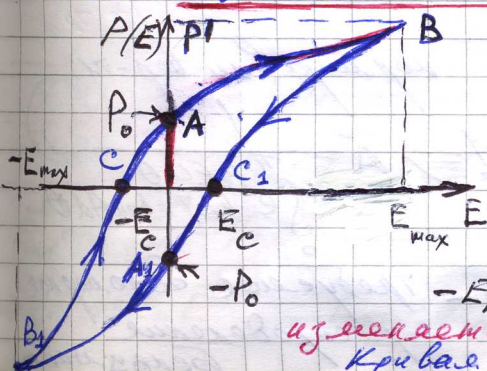 P(E) P' B
P₀ A
-Eₘₐₓ C C₁
-E_C E_C Eₘₐₓ E
A₁ -P₀
B₁ -E
изменяет
Кривая